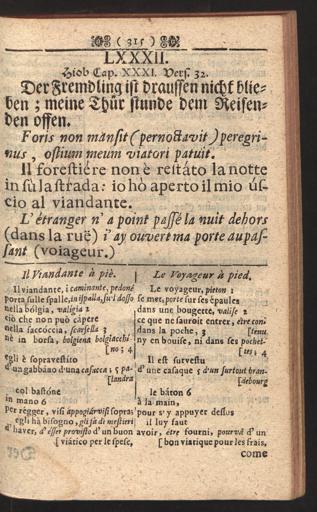 ( 315 )
LXXXII.
Hiob Cap. XXXI. Vers. 32.
Der Fremdling ist draussen nicht blie-
ben ; meine Thür stunde dem Reisen-
den offen.
Foris non mansit (pernoctavit) peregri-
nus , ostium meum viatori patuit.
Il forestiére non è restáto la notte
in sù la strada: io hò aperto il mio ús-
cio al viandante.
L' étranger n' a point passé la nuit dehors
(dans la ruë) j' ay ouvert ma porte au pas-
sant (voiageur.)
Il Viandante à piè.
Il viandante, i caminante, pedoné
porta sulle spalle, in ispalla, su'l dosso
nella bólgia, valigia 2
ciò che non può cápere
nella saccóccia, scarsella 3
nè in borsa, bolgiena bolgiacchi-
[no ; 4
egli è sopravestíto
d'un gabbáno d'una casacca ; 5 pa-
[landra
col bastóne
in mano 6
per régger, visi appogiárvisi sopra
egli hà bisogno, gli fà di mestieri
d'haver, d'ésser provisto d'un buon
[viático per le spese,
Le Voyageur à pied.
Le voyageur, pieton 1
se met, porte sur ses épaules
dans une bougette, valise 2
ce que ne sauroit entrer, être con-
dans la poche ; 3 [tenu
ny en bouise, ni dans ses pochet-
[tes ; 4
Il est survestu
d'une casaque 5 d'un surtout bran-
[debourg
le bâton 6
à la main,
pour s'y appuyer dessus
il luy faut
avoir, étre fourni, pourvû d'un
[bon viatique pour les frais,
come